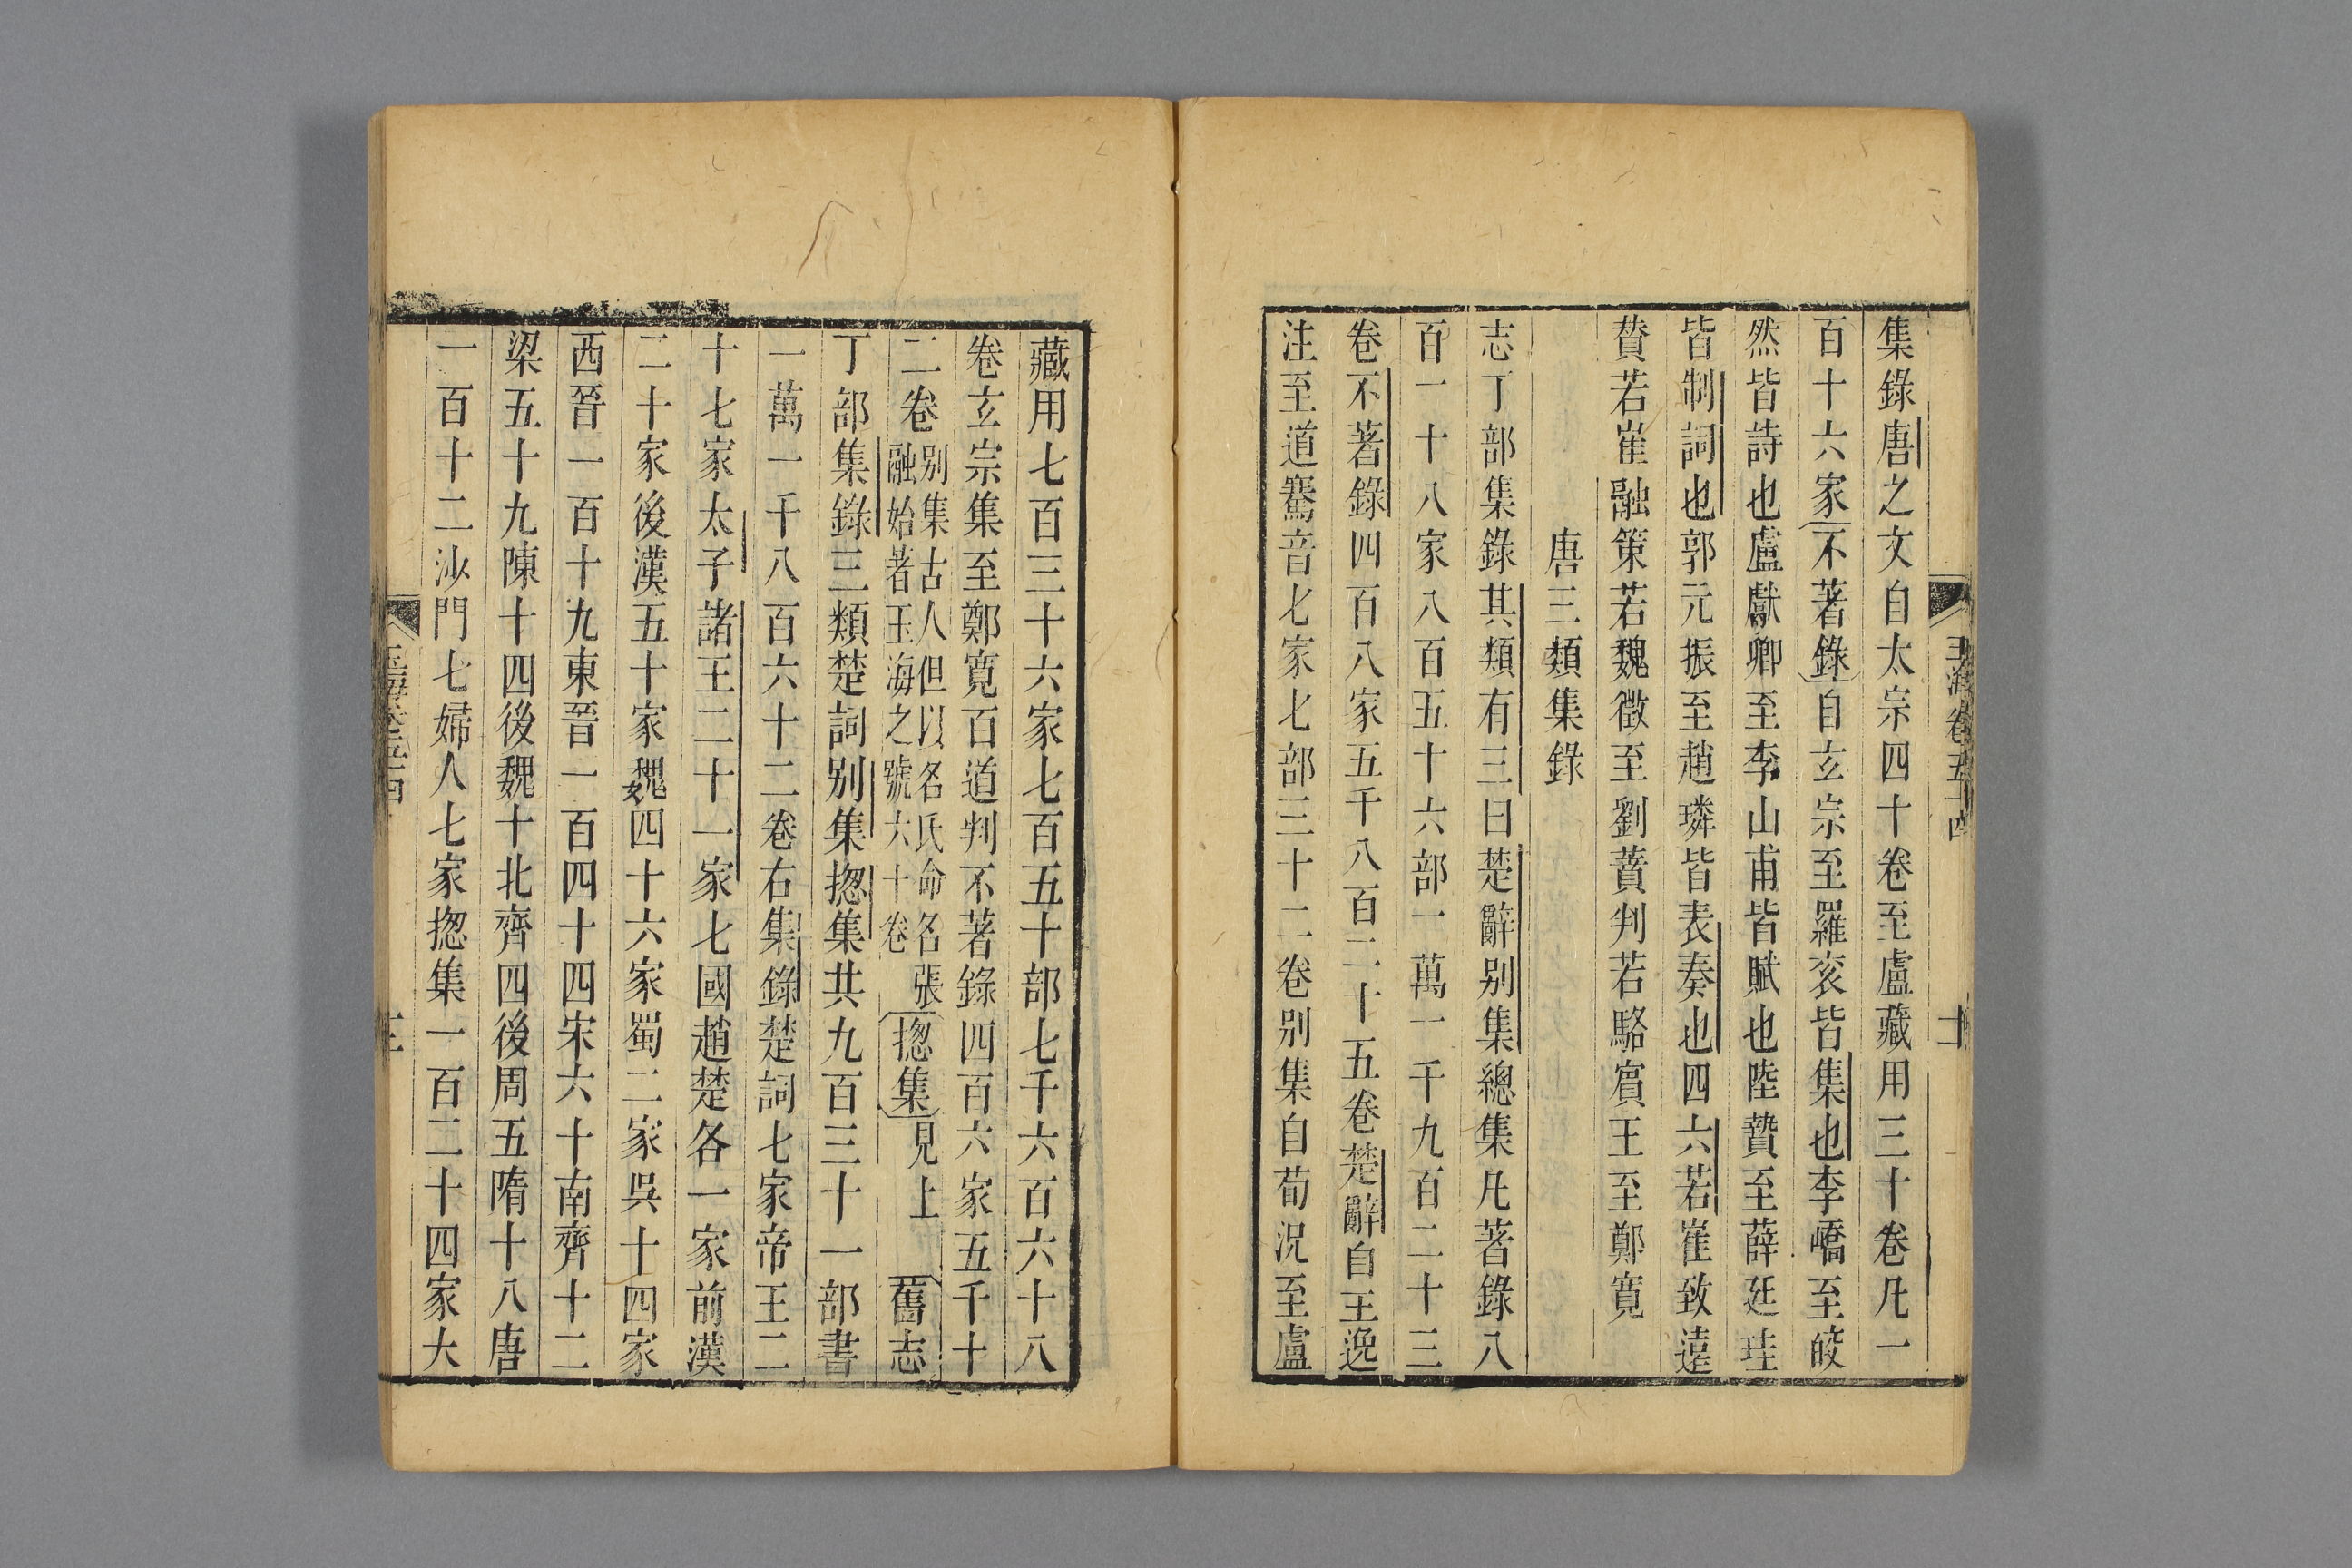 玉海卷五十四
集錄唐之文自太宗四十卷至盧藏用三十卷凡一
百十六家不著錄自玄宗至羅衮皆集也李嶠至皎
然皆詩也盧獻卿至李山甫皆賦也陸贄至薛廷珪
皆制詞也郭元振至趙璘皆表奏也四六若崔致遠
賛若崔融策若魏徵至劉蕡判若駱賓王至鄭寬
唐三類集錄
志丁部集錄其類有三曰楚辭别集總集凡著錄八
百一十八家八百五十六部一萬一千九百二十三
卷不著錄四百八家五千八百二十五卷楚辭自王逸
注至道騫音七家七部三十二卷别集自荀況至盧
藏用七百三十六家七百五十部七千六百六十八
卷玄宗集至鄭寬百道判不著錄四百六家五千十
二卷别集古人但以名氏命名張融始著玉海之號六十卷揔集見上 舊志
丁部集錄三類楚詞别集揔集共九百三十一部書
一萬一千八百六十二卷右集錄楚詞七家帝王二
十七家太子諸王二十一家七國趙楚各一家前漢
二十家後漢五十家魏四十六家蜀二家吳十四家
西晉一百十九東晉一百四十四宋六十南齊十二
梁五十九陳十四後魏十北齊四後周五隋十八唐
一百十二沙門七婦人七家揔集一百二十四家大